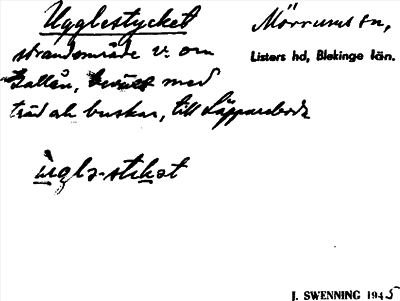 Ugglestycket
Mörrums sn,
strandområde v. om
Listers hd, Blekinge län.
Kallån, bevuxet med
träd och buskar, till Läppareboda
ùgla-stikat
J. SWENNING 1945